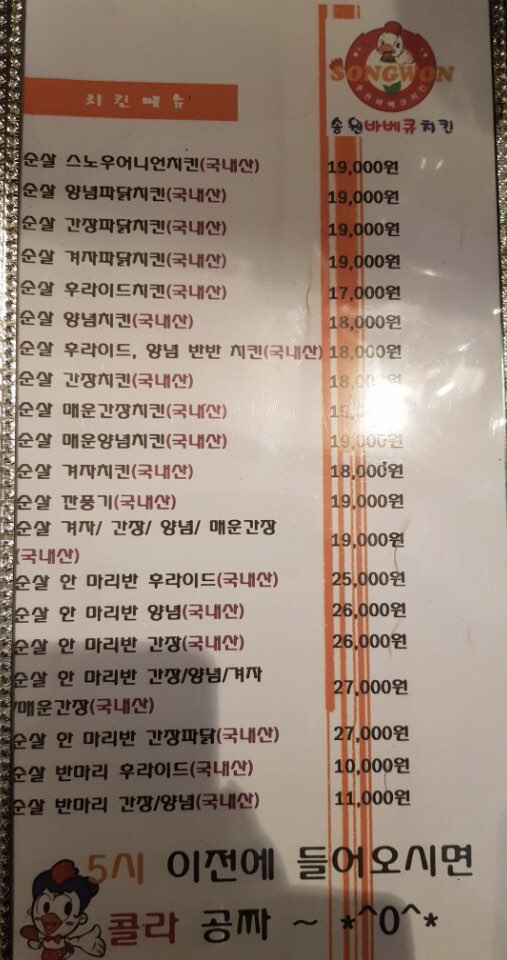 SONGWON
송원바베큐치킨
송원바베큐치킨
치킨메뉴
순살 스노우어니언치킨(국내산) 19,000원
순살 양념파닭치킨(국내산) 19,000원
순살 간장파닭치킨(국내산) 19,000원
순살 겨자파닭치킨(국내산) 19,000원
순살 후라이드치킨(국내산) 17,000원
순살 양념치킨(국내산) 18,000원
순살 후라이드, 양념 반반 치킨(국내산) 18,000원
순살 간장치킨(국내산) 18,000원
순살 매운간장치킨(국내산)
순살 매운양념치킨(국내산) 19,000원
순살 겨자치킨(국내산) 18,000원
순살 깐풍기(국내산) 19,000원
순살 겨자/ 간장/ 양념/ 매운간장
(국내산) 19,000원
순살 안 마리반 후라이드(국내산) 25,000원
순살 안 마리반 양념(국내산) 26,000원
순살 안 마리반 간장(국내산) 26,000원
순살 안 마리반 간장/양념/겨자
/매운간장(국내산) 27,000원
순살 안 마리반 간장파닭(국내산) 27,000원
순살 반마리 후라이드(국내산) 10,000원
순살 반마리 간장/양념(국내산) 11,000원
5시 이전에 들어오시면
콜라 공짜 ~ *^0^*